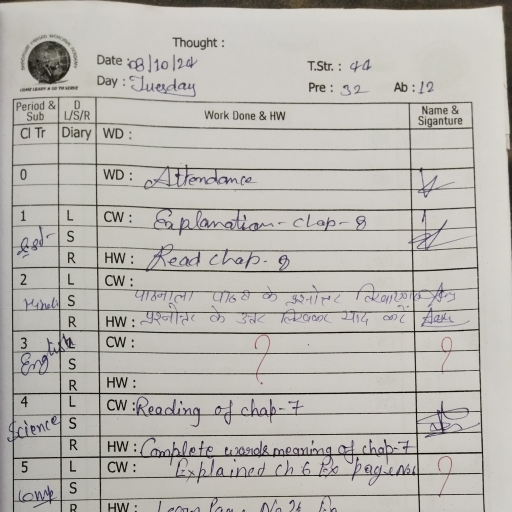 Thought :
Date : 08/10/24 T.Str. : 44
Day : Tuesday Pre : 32 Ab : 12
COME LEARN & GO TO SERVE
Period & Sub D L/S/R Work Done & HW Name & Siganture
Cl Tr Diary WD :
0 WD : Attendance
1 L CW : Explanation - chap - 8
S
R HW : Read chap - 8
2 L CW :
Hindi S पाठ 8 के प्रश्नोत्तर
R HW : प्रश्नोत्तर के उत्तर लिखकर याद करें
3 L CW : ?  ?
English S
R HW :
4 L CW : Reading of chap - 7
Science S
R HW : Complete words meaning of chap - 7
5 L CW : Explained ch 6 Ex page No. ?
Comp S
R HW : Learn Page No 26